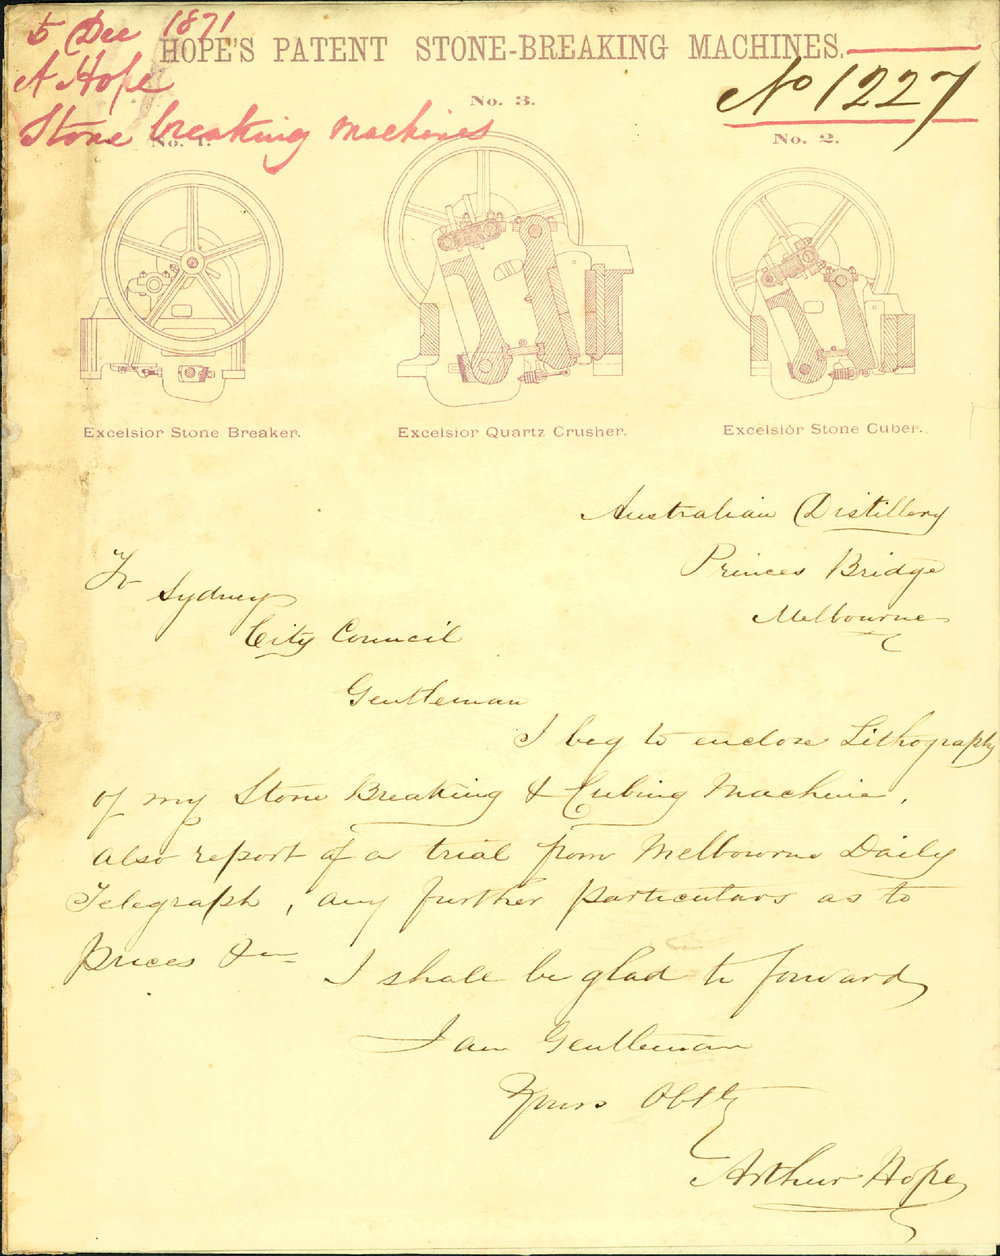 5 Dec 1871
A Hope
Stone breaking machines
HOPE'S PATENT STONE-BREAKING MACHINES.
No 1227
No. 1.
No. 3.
No. 2.
Excelsior Stone Breaker.
Excelsior Quartz Crusher.
Excelsior Stone Cuber.
Australian Distillery
Princes Bridge
Melbourne
To Sydney
City Council
Gentleman
I beg to enclose Lithography
of my Stone Breaking & Cubing Machine,
also report of a trial from Melbourne Daily
Telegraph, any further particulars as to
prices &c
I shall be glad to forward
I am Gentleman
Yours Obtly
Arthur Hope